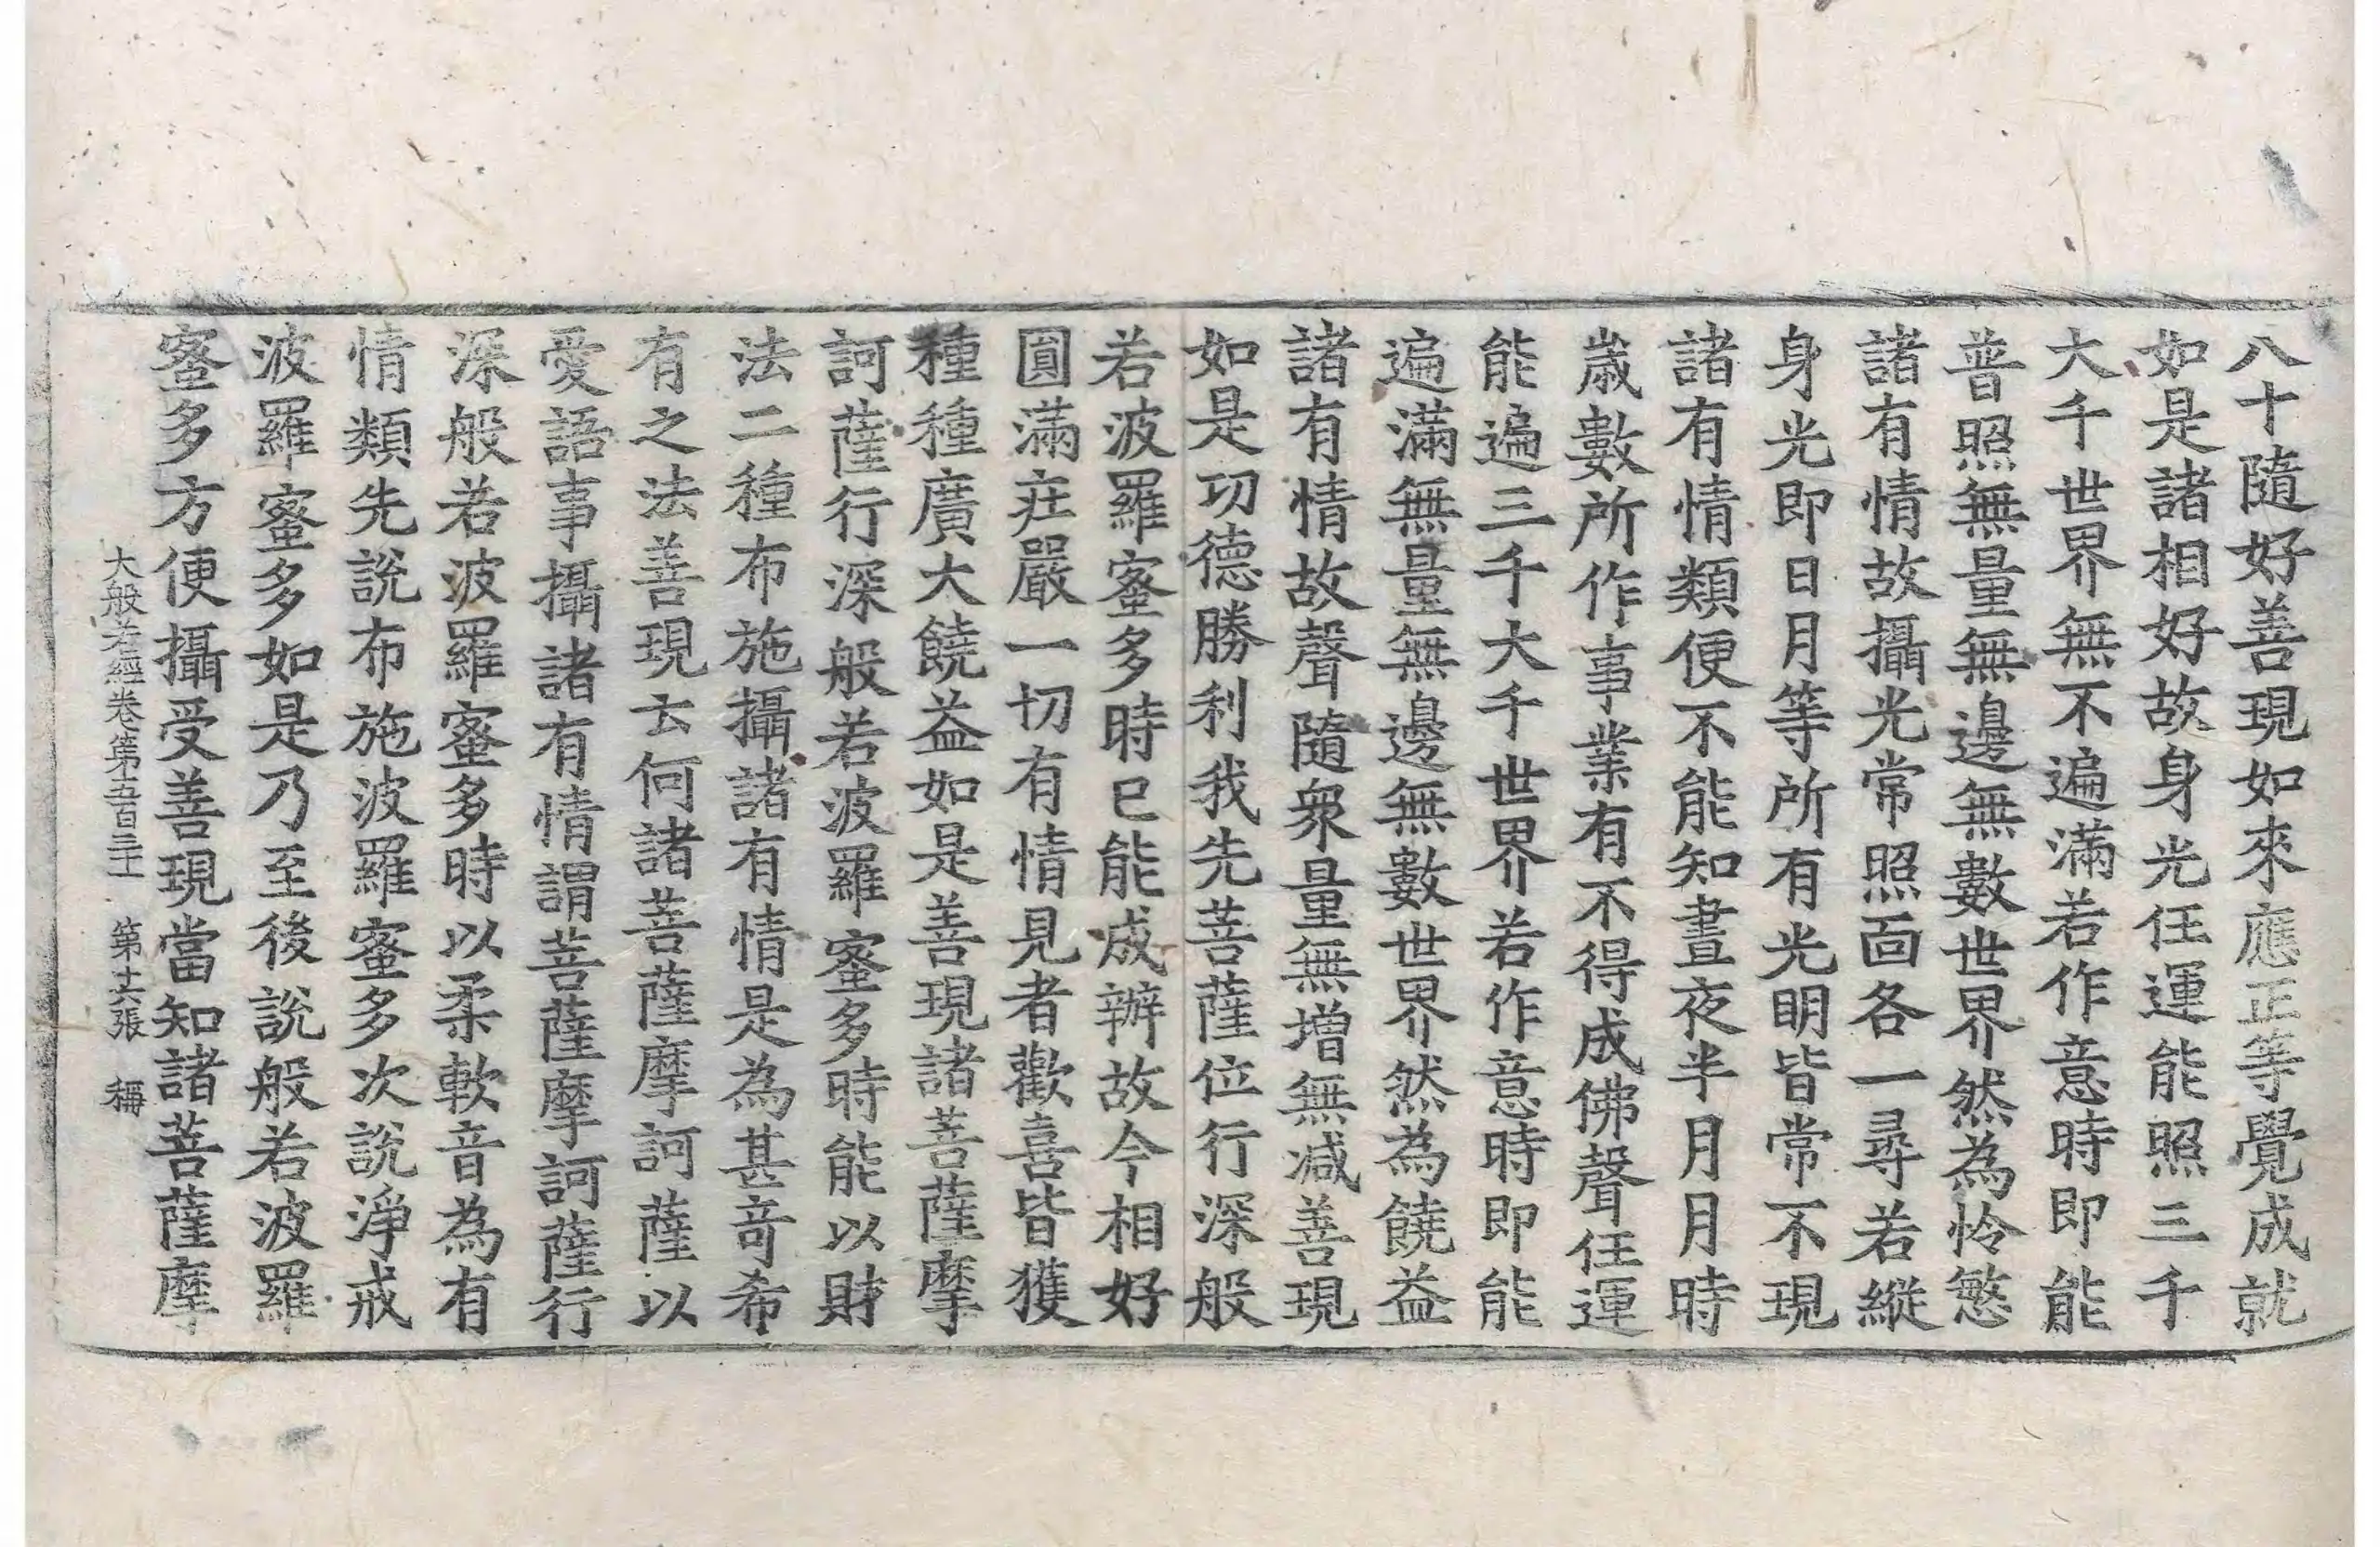 八十隨好善現如來應正等覺成就
如是諸相好故身光任運能照三千
大千世界無不遍滿若作意時即能
普照無量無邊無數世界然為怜愍
諸有情故攝光常照面各一尋若縱
身光即日月等所有光明皆常不現
諸有情類便不能知晝夜半月月時
歲數所作事業有不得成佛聲任運
能遍三千大千世界若作意時即能
遍滿無量無邊無數世界然為饒益
諸有情故聲隨衆量無增無減善現
如是功德勝利我先菩薩位行深般
若波羅蜜多時已能成辦故今相好
圓滿莊嚴一切有情見者歡喜皆獲
種種廣大饒益如是善現諸菩薩摩
訶薩行深般若波羅蜜多時能以財
法二種布施攝諸有情是為甚奇希
有之法善現云何諸菩薩摩訶薩以
愛語事攝諸有情謂菩薩摩訶薩行
深般若波羅蜜多時以柔軟音為有
情類先說布施波羅蜜多次說淨戒
波羅蜜多如是乃至後說般若波羅
蜜多方便攝受善現當知諸菩薩摩
大般若經卷第五百三十一 第十六張 稱